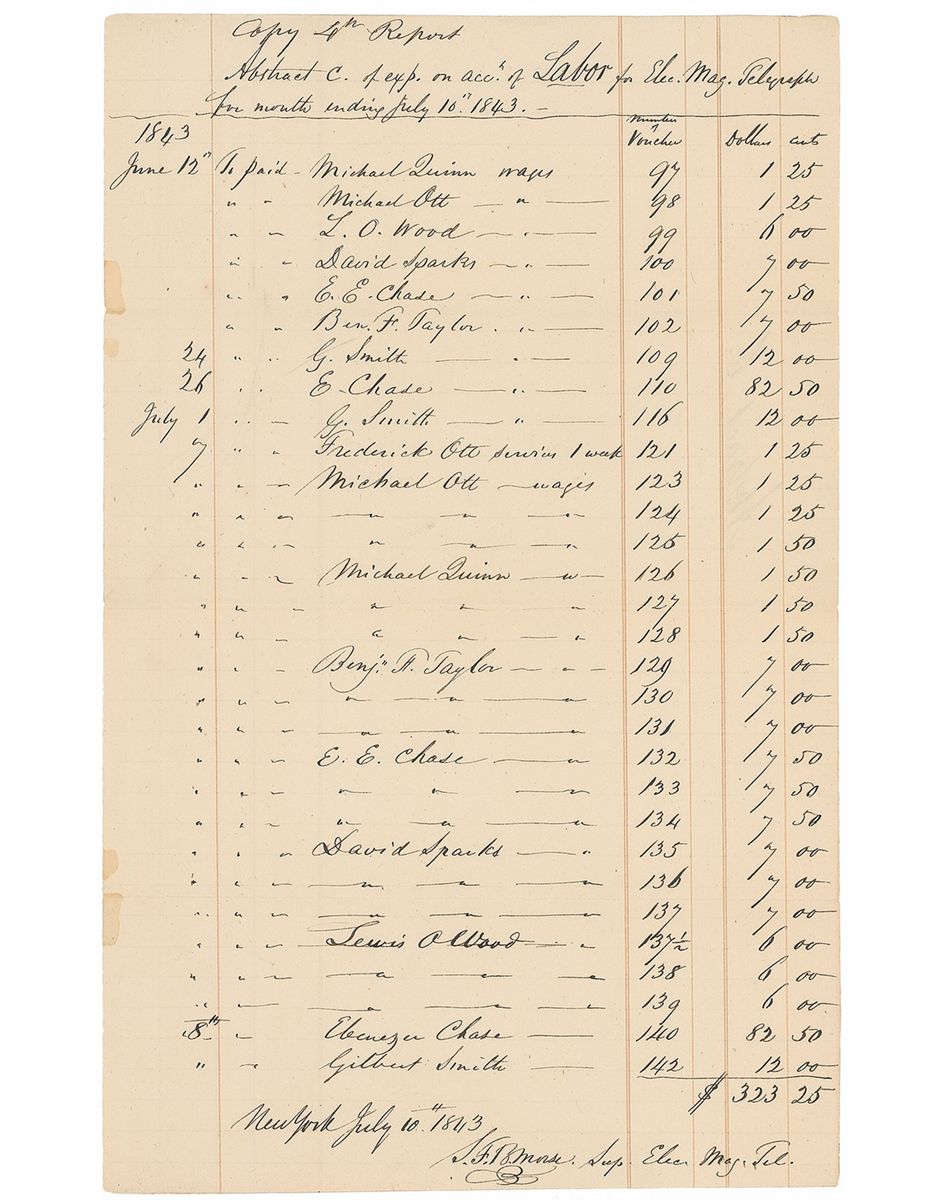 Copy 4th Report
Abstract C. of exp. on acct. of Labor for Elec. Mag. Telegraph
for month ending July 10th 1843. —
1843 Number Voucher Dollars cents
June 12th To paid - Michael Quinn wages 97 1 25
" " Michael Ott — " — 98 1 25
" " L. O. Wood — " — 99 6 00
" " David Sparks — " — 100 7 00
" " E. E. Chase — " — 101 7 50
" " Ben. F. Taylor . " — 102 7 00
24 " " G. Smith — " — 109 12 00
26 " " E. Chase — " — 110 82 50
July 1 " — G. Smith — " — 116 12 00
7 " " Frederick Ott services 1 week 121 1 25
" " — Michael Ott — wages 123 1 25
" " " — " — " — " 124 1 25
" " — " — " — " 125 1 50
" " — Michael Quinn — " — 126 1 50
" " — " — " — " 127 1 50
" " — " — " — " 128 1 50
" " — Benjn. F. Taylor — " — 129 7 00
" " — " — " — " 130 7 00
" " — " — " — " 131 7 00
" " " E. E. Chase — " 132 7 50
" " — " — " — " 133 7 50
" " — " — " — " 134 7 50
" " " David Sparks — " 135 7 00
" " — " — " — " 136 7 00
" " — " — " — " 137 7 00
" " — Lewis O Wood — " 137½ 6 00
" " — " — " — " 138 6 00
" " — " — " — " 139 6 00
" 8th " Ebenezer Chase — 140 82 50
" — Gilbert Smith — 142 12 00
$ 323 25
New York July 10th 1843
S. F. B. Morse. Sup. Elec. Mag. Tel.